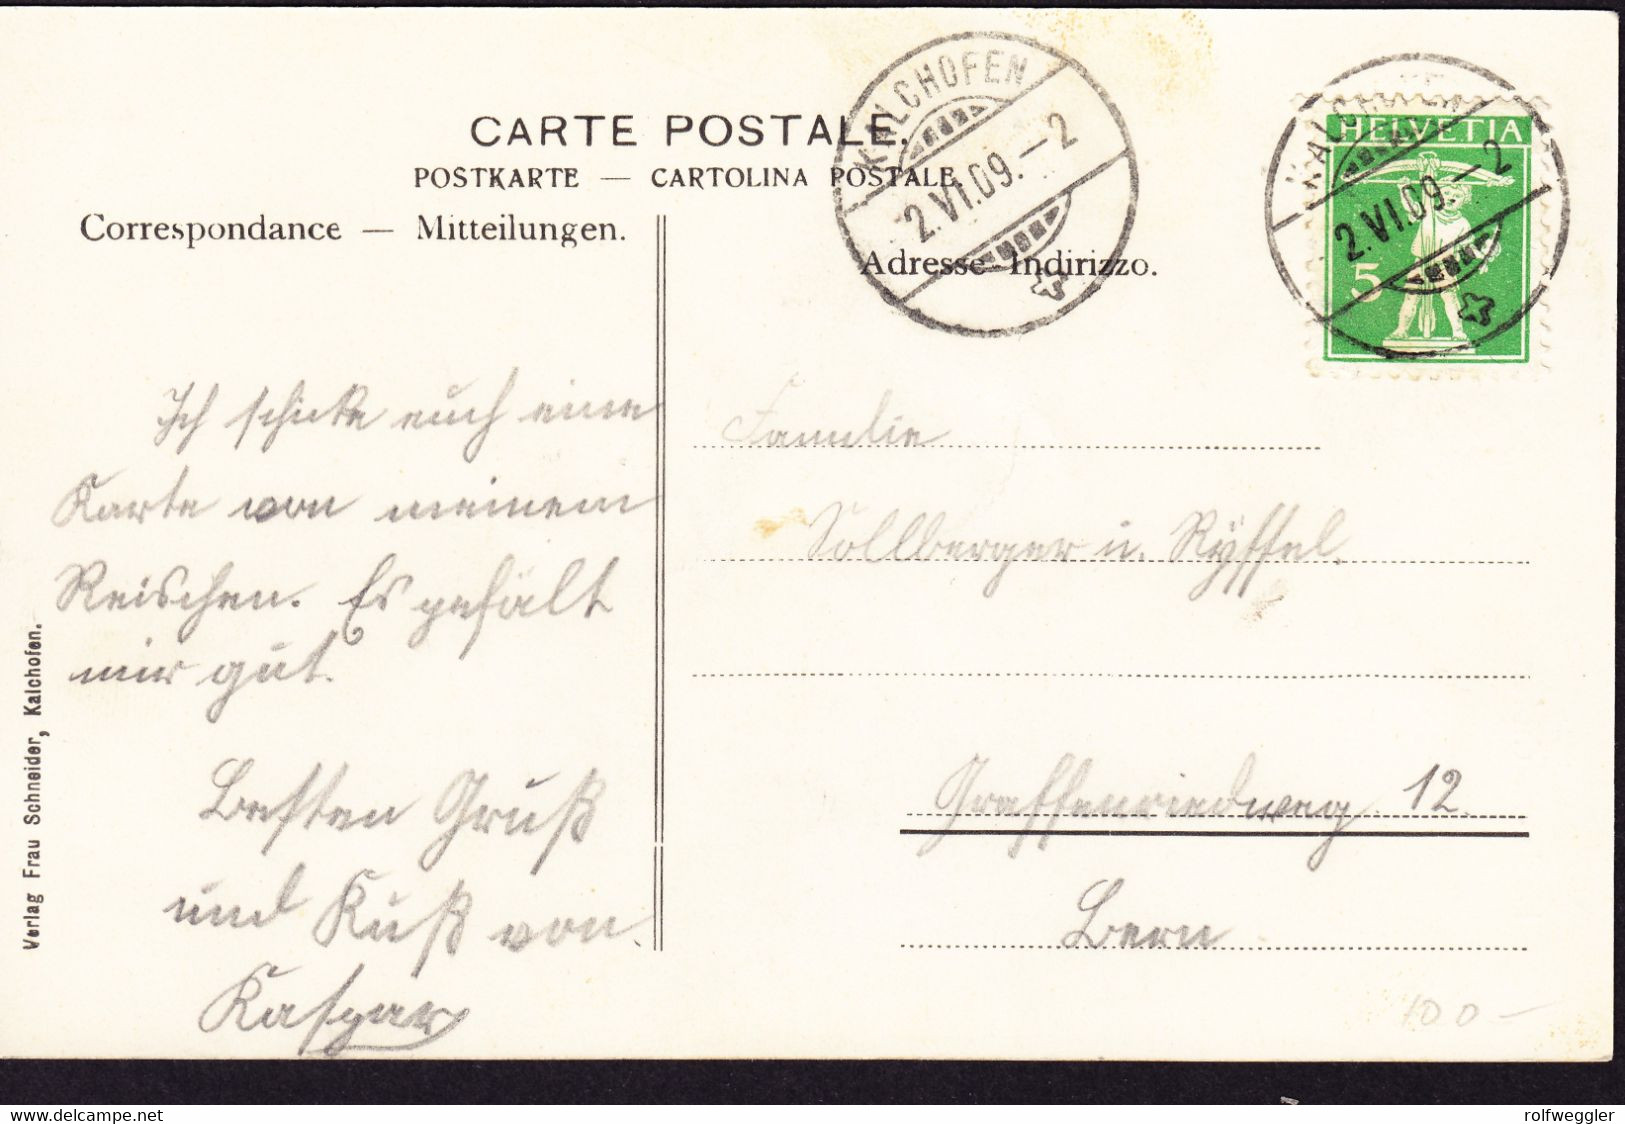 CARTE POSTALE.
POSTKARTE — CARTOLINA POSTALE
Correspondance — Mitteilungen.
Adresse-Indirizzo.
KALCHOFEN
2.VI.09.–2
KALCHOFEN
2.VI.09.–2
HELVETIA
5
Ich schicke euch eine
Karte von meinem
Reischen. Es gefält
mir gut.
Besten Gruß
und Kuß von
Kaspar
Familie
Sollberger u. Ryffel.
Graffenriedweg 12.
Bern
100-
Verlag Frau Schneider, Kalchofen.
delcampe.net
rolfweggler